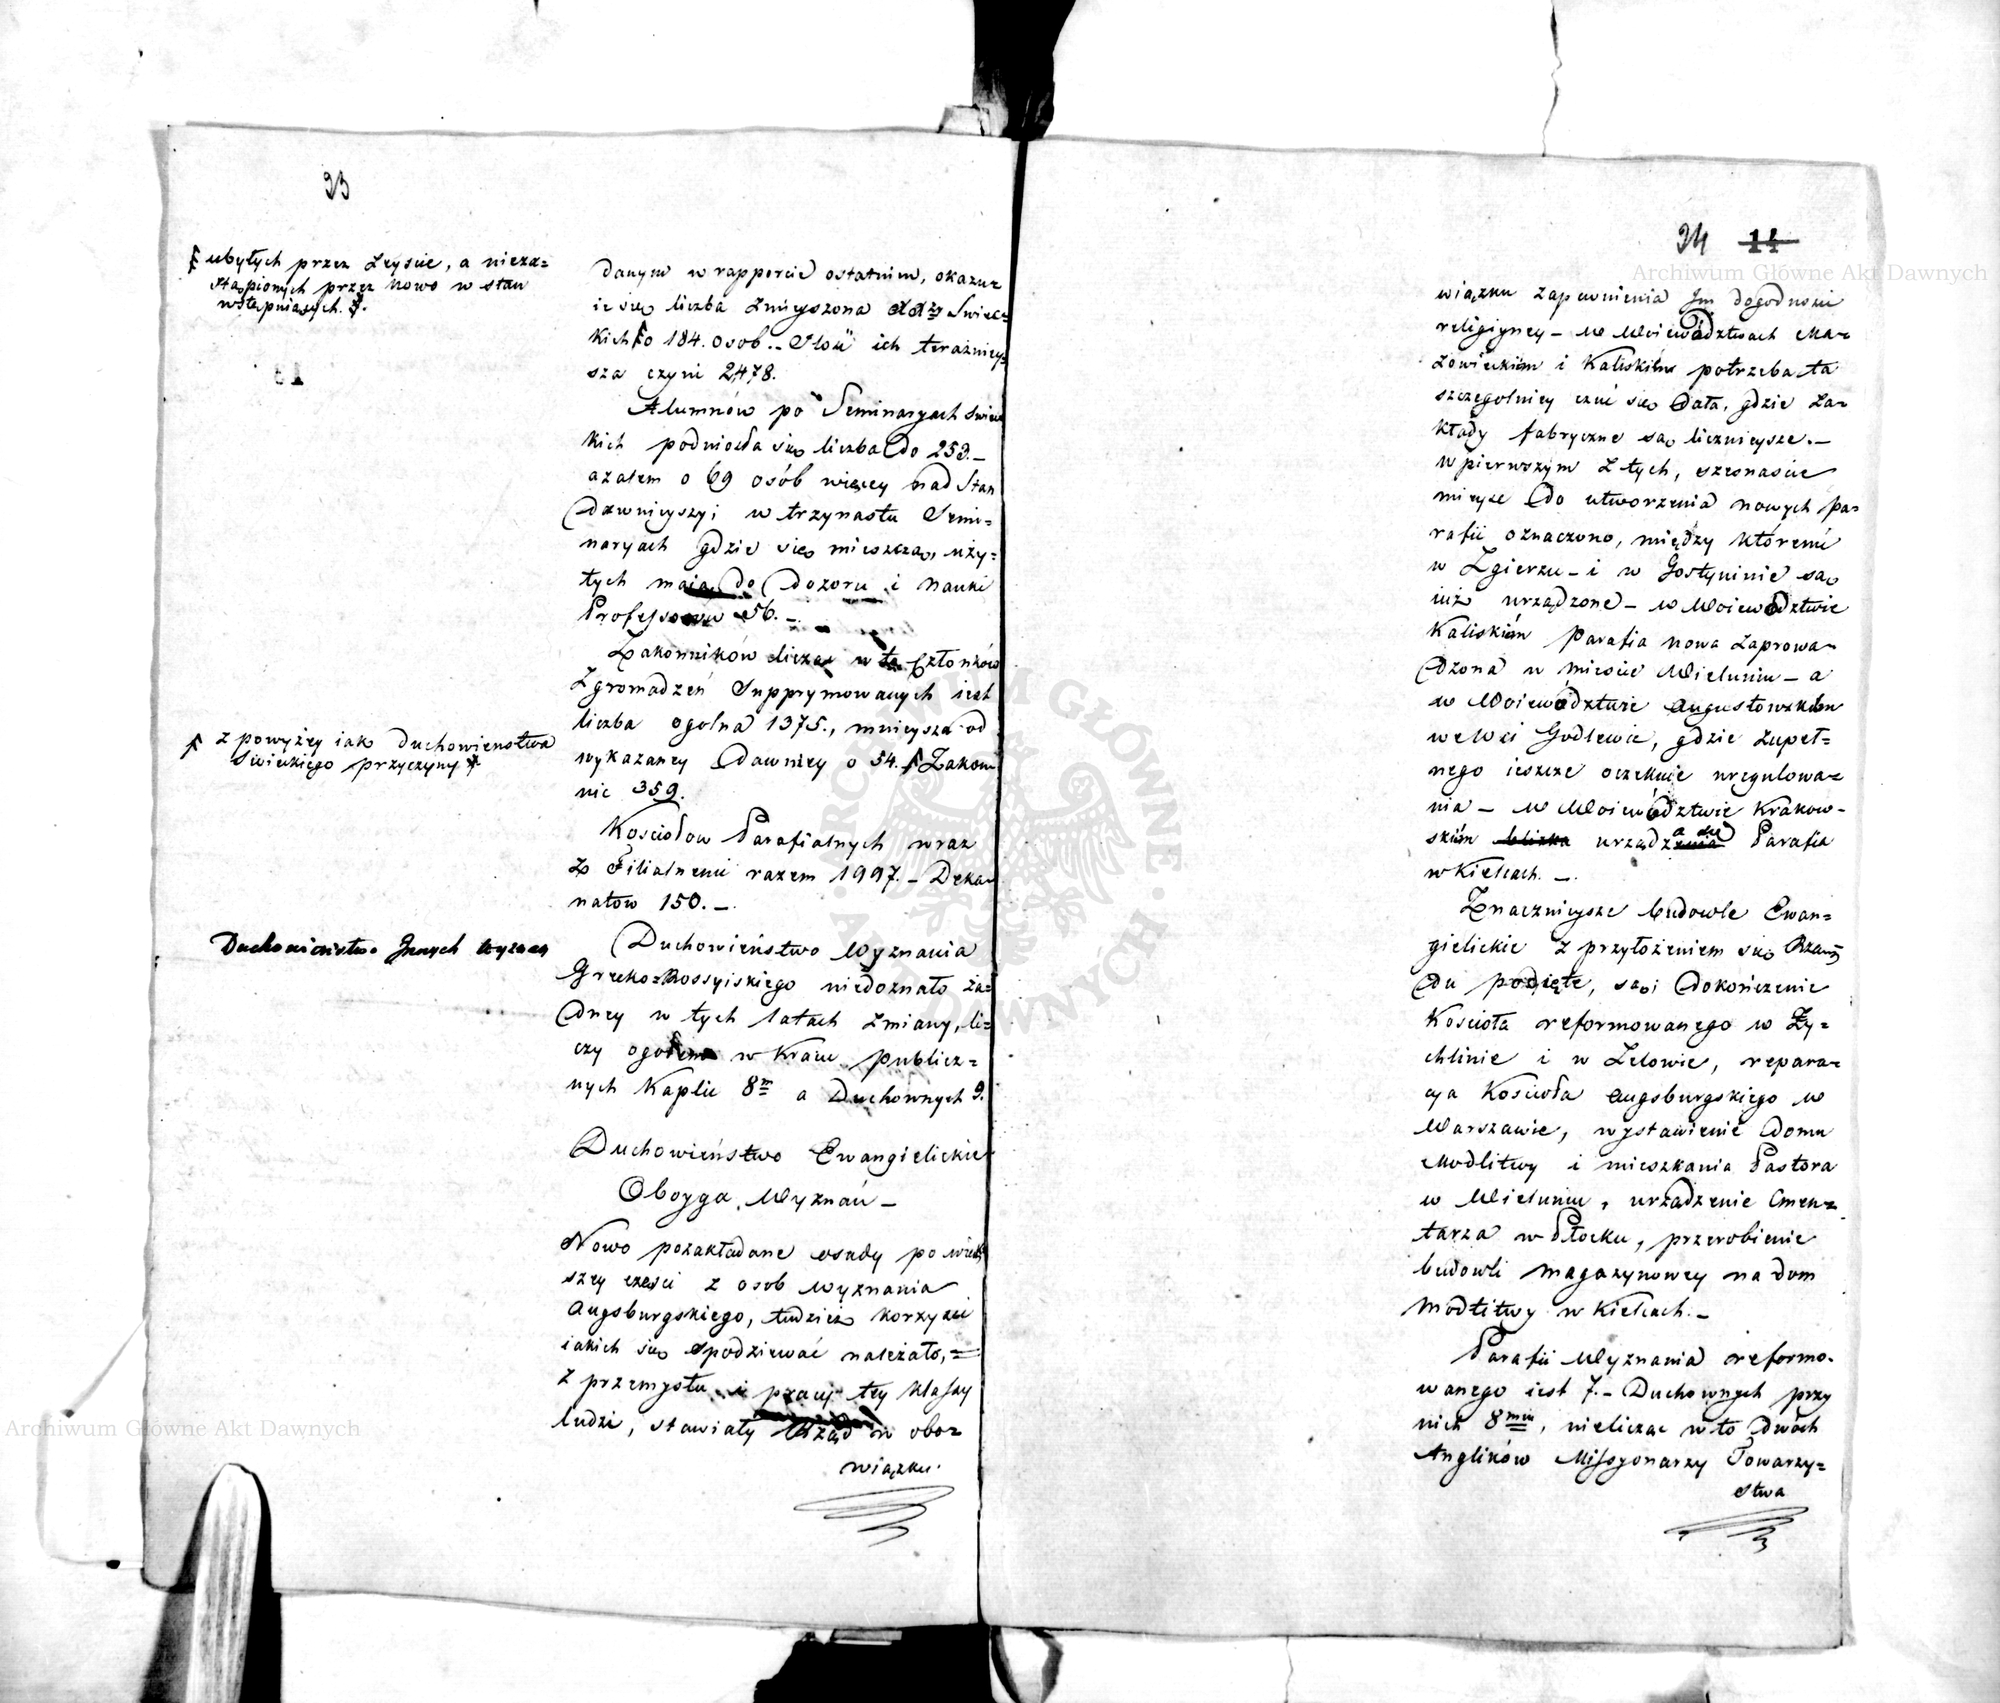 93
ubyłych przez Zeyście, a nieza=
stąpionych przez nowo w stan
wstępuiących.
danym w rapporcie ostatnim, okazu=
ie się liczba zmnieyszona XXży Świec=
kich o 184. osob. _ Ilość ich teraźniey=
sza czyni 2478.
Alumnów po Seminaryach Świec
kich podniosła się liczba do 253. _
azatem o 69 osób więcey nad Stan
dawnieyszy; w trzynastu Semi=
naryach gdzie się mieszczą, uży=
tych maią do dozoru i Nauki
Professorów 56. _
Zakonników licząc w to Członków
Zgromadzeń Supprymowanych iest
liczba ogolna 1375., mnieysza od
wykazaney dawniey o 54. Zakon
nic 359.
z powyżey iak Duchowieństwa
Świeckiego przyczyny
Kosciołow Parafialnych wraz
z Filialnemi razem 1997. _ Deka=
natow 150. _
Duchowieństwo Innych wyznań
Duchowieństwo Wyznania
Grecko=Rossyiskiego niedoznało ża=
dney w tych latach zmiany, li=
czy ogołem w Kraiu publicz=
nych Kaplic 8m a Duchownych 9.
Duchowieństwo Ewangielickie
Oboyga Wyznań _
Nowo pozakładane osady po więk
szey części z osob wyznania
Augsburgskiego, tudzież korzyści
iakich się spodziewać należało, =
z przemysłu i pracy tey klassy
ludzi, stawiały Rząd w obo=
wiązku.
94 14
wiązku zapewnienia Im dogodności
religiyney _ W Woiewództwach Ma=
zowieckim i Kaliskim potrzeba ta
szczegolniey czuć się dała, gdzie Za=
kłady fabryczne są licznieysze. _
W pierwszym z tych, szesnaście
mieysc do utworzenia nowych pa=
rafii oznaczono, między któremi
w Zgierzu _ i w Gostyninie są
iuż urządzone _ w Woiewództwie
Kaliskim Parafia nowa zaprowa=
dzona w mieście Wieluniu _ a
w Woiewództwie Augustowskim
we Wsi Godlewie, gdzie zupeł=
nego ieszcze oczekuie uregulowa=
nia _ W Woiewództwie Krakow=
skim bliska urządza się Parafia
w Kielcach. _
Znacznieysze budowle Ewan=
gielickie z przyłożeniem się Rzą=
du podięte, są; dokończenie
Kościoła reformowanego w Ży=
chlinie i w Zelowie, repara=
cya Kościoła Augsburgskiego w
Warszawie, wystawienie domu
Modlitwy i mieszkania Pastora
w Wieluniu, urządzenie Cmen=
tarza w Płocku, przerobienie
budowli magazynowey na dom
modlitwy w Kielcach. _
Parafii Wyznania reformo=
wanego iest 7. _ Duchownych przy
nich 8miu, nielicząc w to dwóch
Anglików Missyonarzy Towarzy=
stwa
Archiwum Główne Akt Dawnych
Archiwum Główne Akt Dawnych